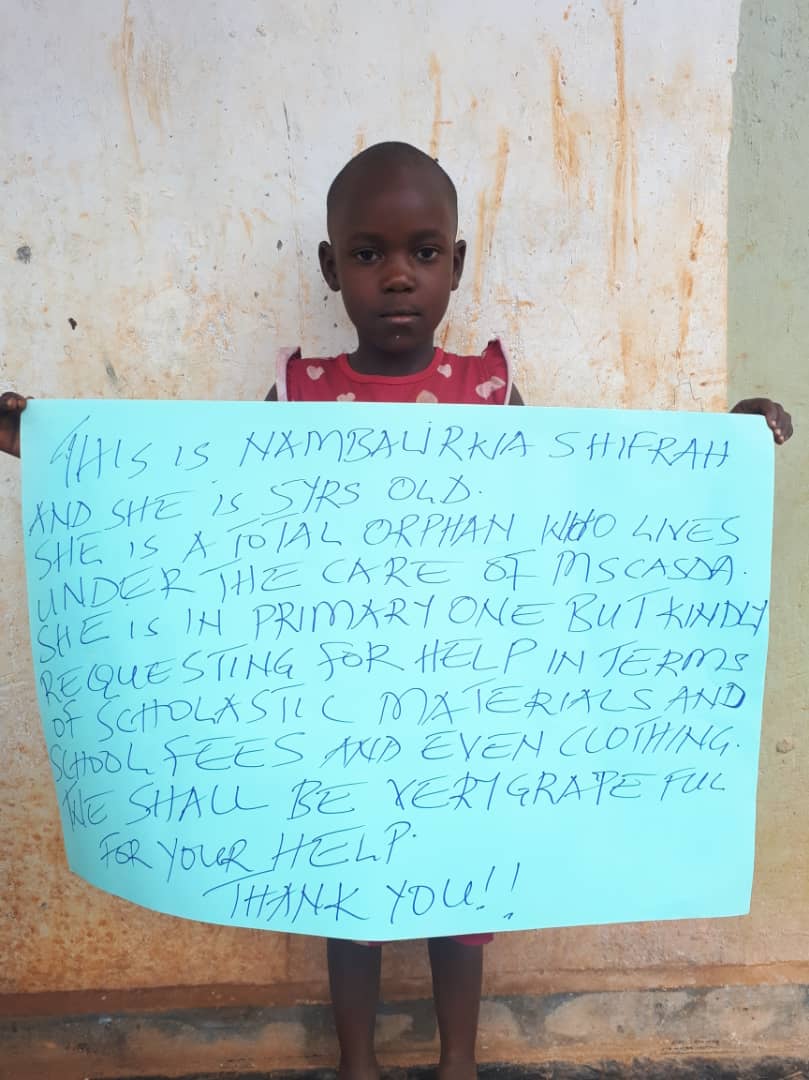 THIS IS NAMBALIRWA SHIFRAH
AND SHE IS 5YRS OLD.
SHE IS A TOTAL ORPHAN WHO LIVES
UNDER THE CARE OF MSCASDA.
SHE IS IN PRIMARY ONE BUT KINDLY
REQUESTING FOR HELP IN TERMS
OF SCHOLASTIC MATERIALS AND
SCHOOL FEES AND EVEN CLOTHING.
WE SHALL BE VERY GRATEFUL
FOR YOUR HELP.
THANK YOU!!